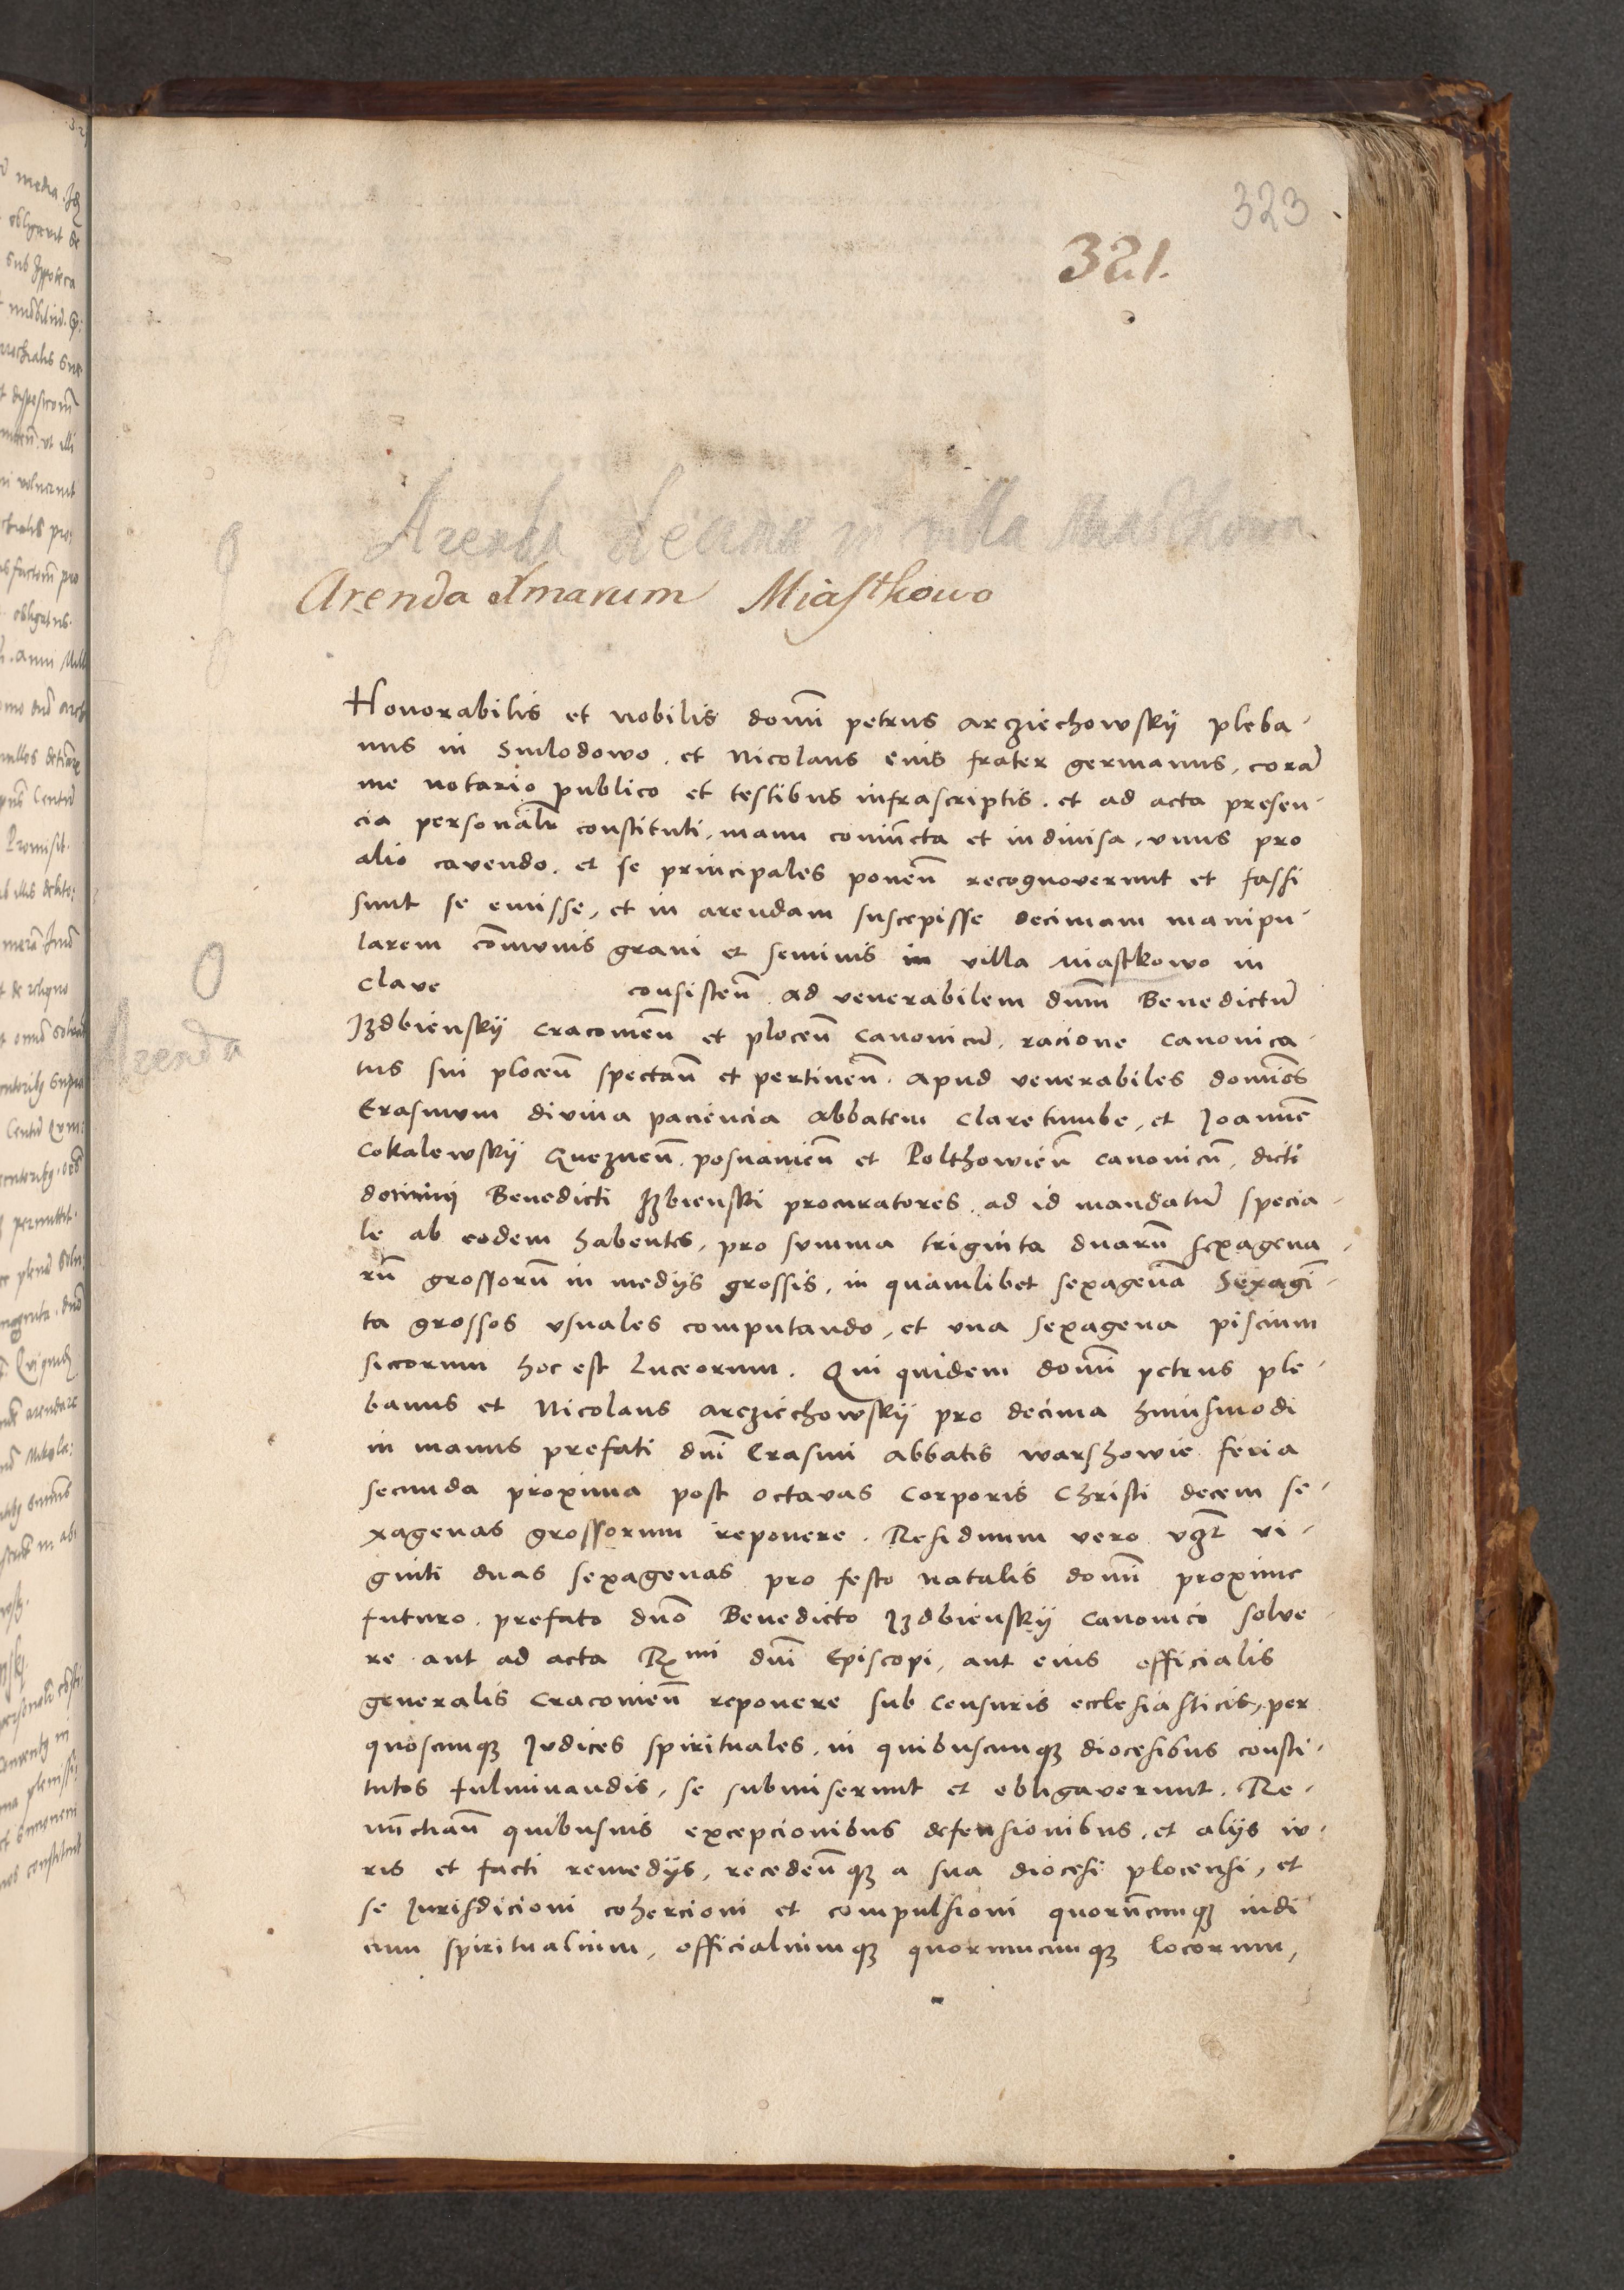 323
321.
Arenda decime in villa Miasthkowo
Arenda dmarum Miasthkowo
Honorabilis et nobilis domi petrus arcziechowskÿ pleba-
nus in Smlodowo. et Nicolaus eius frater germanus, corā
me notario publico et testibus infrascriptis. et ad acta presen-
cia personalr constituti, manu coniūcta et indivisa, unus pro
alio cavendo. et se principales ponen̄ recognoverunt et fassi
sunt se emisse, et in arendam suscepisse decimam manipu-
larem cōmunis grani et seminis in villa Miastkowo in
clave consisten̄ ad venerabilem dnm̄ Benedictū
Jzdbienskÿ Cracovien̄ et plocen̄ Canonicū, racione Canonica-
Arenda
tus sui plocen̄ spectan̄ et pertinen̄. apud venerabiles domīos
Erasmum divina paciencia abbatem Claretumbe, et Joannē
Cokalewskÿ Gneznen̄. posnanien̄ et Polthowien̄ canonicū, dicti
dominii Benedicti Jzbienski procuratores. ad id mandatū specia-
le ab eodem habentes, pro summa triginta duarū sexagena-
rū grossorū in medÿs grossis, in quamlibet sexagenā Sexagī-
ta grossos usuales computando, et una sexagena piscium
siccorum hoc est Luceorum. Qui quidem domī petrus ple-
banus et Nicolaus arcziechowskÿ pro decima huiusmodi
in manus prefati dnī Erasmi abbatis warshowie feria
secunda proxima post octavas Corporis Christi decem se-
xagenas grossorum reponere. Residuum vero vꝫt vi-
ginti duas sexagenas pro festo natalis domī proxime
futuro. prefato dnō Benedicto Jzdbienskÿ canonico solve-
re aut ad acta Rmi dnī Episcopi, aut eius officialis
generalis Cracovien̄ reponere sub Censuris ecclesiasticis, per
quoscunqꝫ Judices spirituales, in quibuscunqꝫ diocesibus consti-
tutos fulminandis, se submiserunt et obligaverunt. Re-
nūctian̄ quibusvis excepcionibus defensionibus, et alÿs iu-
ris et facti remedÿs, receden̄qꝫ a sua diocesi plocensi, et
se Jurisdicioni cohercioni et compulsioni quorūcunqꝫ iudi
cum spiritualium, officialiumqꝫ quorumcunqꝫ locorum,